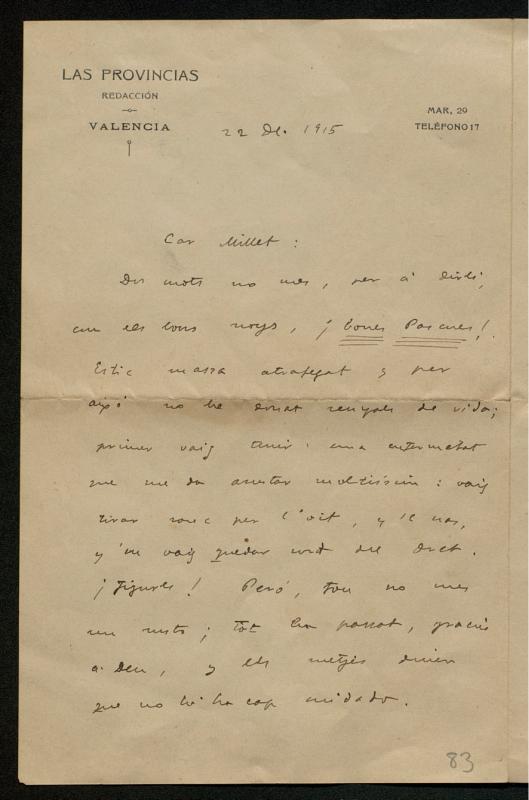 LAS PROVINCIAS
REDACCIÓN
VALENCIA
MAR, 29
TELÉFONO 17
22 De. 1915
Car Millet:
Dos mots no mes, per á dirli,
am els bons noys, ¡bones Pascues!
Estic massa atrafegat y per
aixó no he donat senyals de vida;
primer vaig tenir una enfermetat
que me va asustar moltíssim: vaig
tirar sanc per l'oit, y 'l nas,
y 'm vaig quedar sort del dret.
¡Figures! Peró, fou no mes
un susto; tot ha passat, gracies
á Deu, y els metjes diuen
que no hi ha cap cuidado.
83